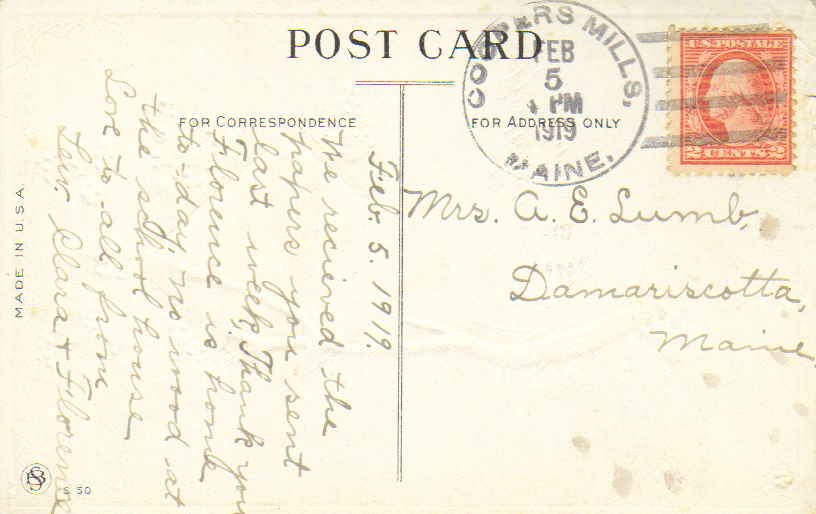 POST CARD
FOR CORRESPONDENCE
FOR ADDRESS ONLY
COOPERS MILLS,
FEB
5
PM
1919
MAINE.
U.S. POSTAGE
2 CENTS 2
Feb. 5. 1919.
We recieved the
papers you sent
last week, Thank you
Florence is home
to-day, no wood at
the school house
Love to all from
Lew. Clara & Florence
Mrs. A. E. Lumb,
Damariscotta,
Maine,
MADE IN U.S.A.
S 50